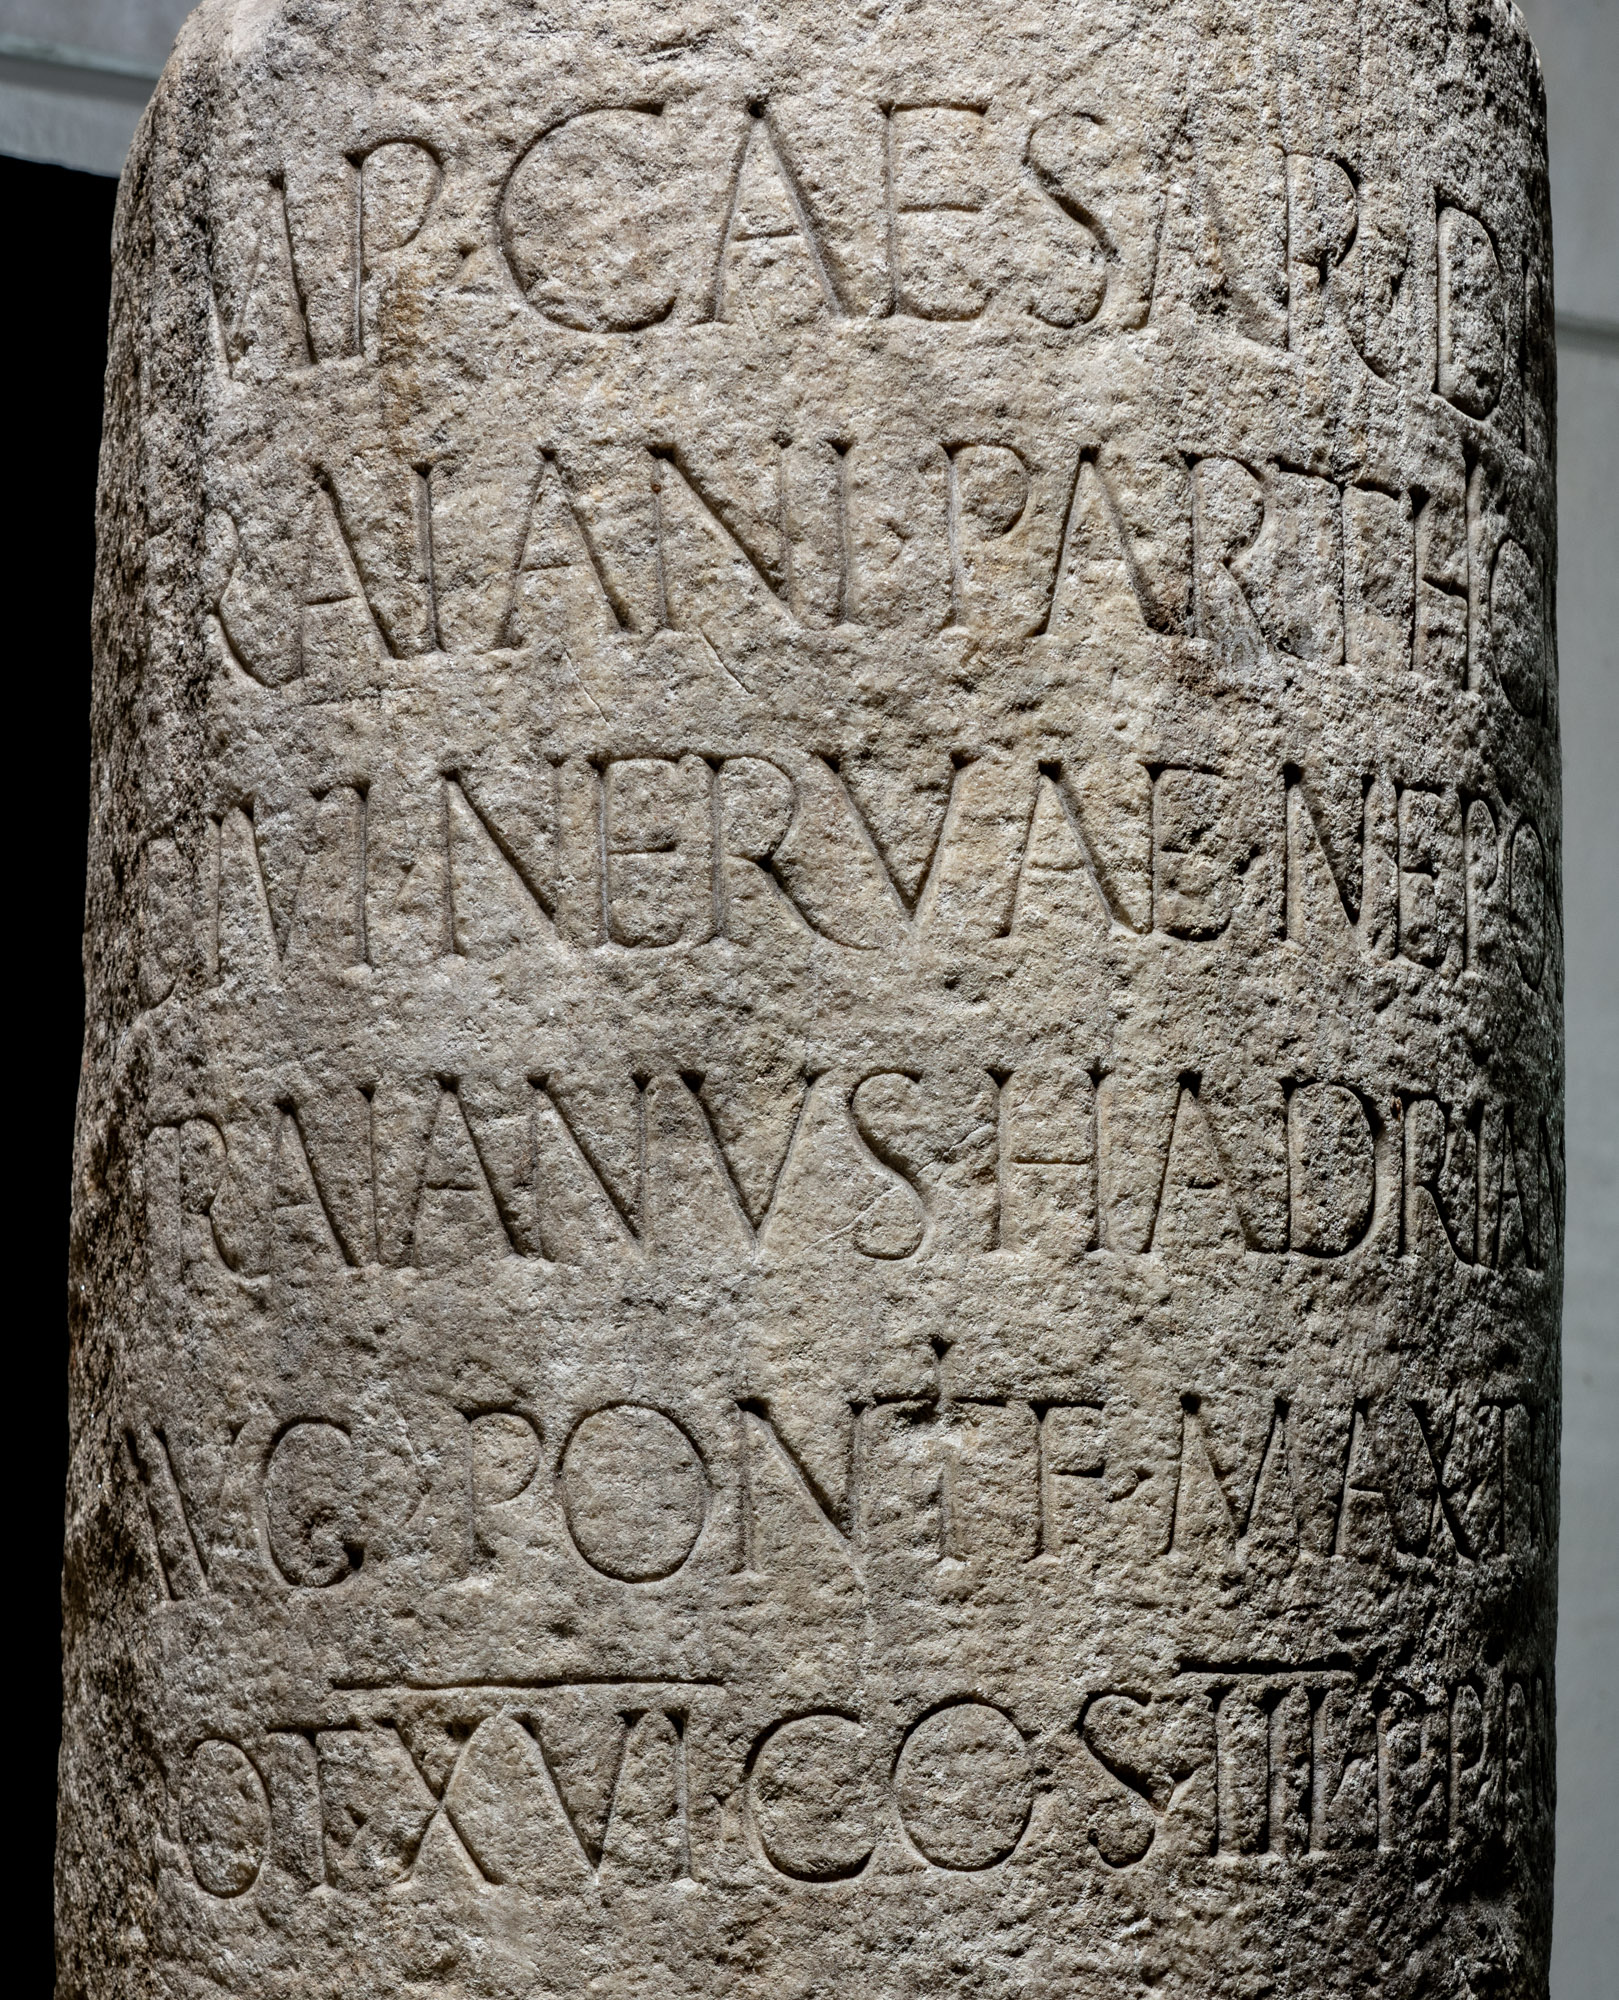 IMP·CAESAR·DI
RAIANI·PARTHIC
F·DIVI·NERVAE·NEPOS
RAIANVS HADRIAN
AVG·PONTIF·MAX·TR
POT·XVI·COS·III·P·P